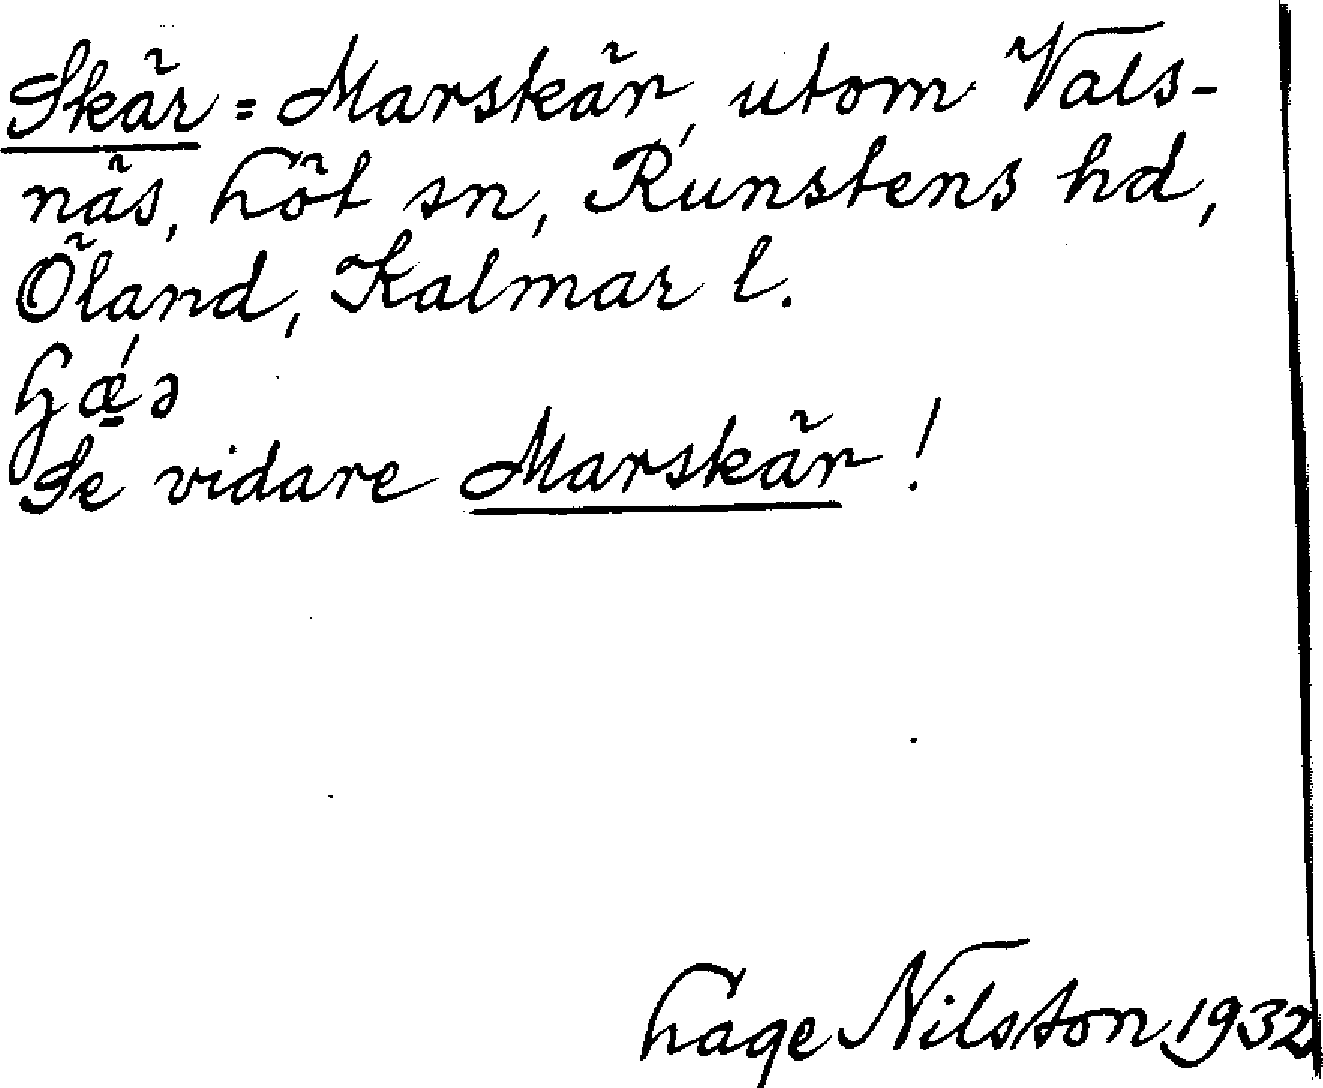 Skär = Marskär, utom Vals-
näs, Löt sn, Runstens hd,
Öland, Kalmar l.
Se vidare Marskär!
Hage Nilston 1932